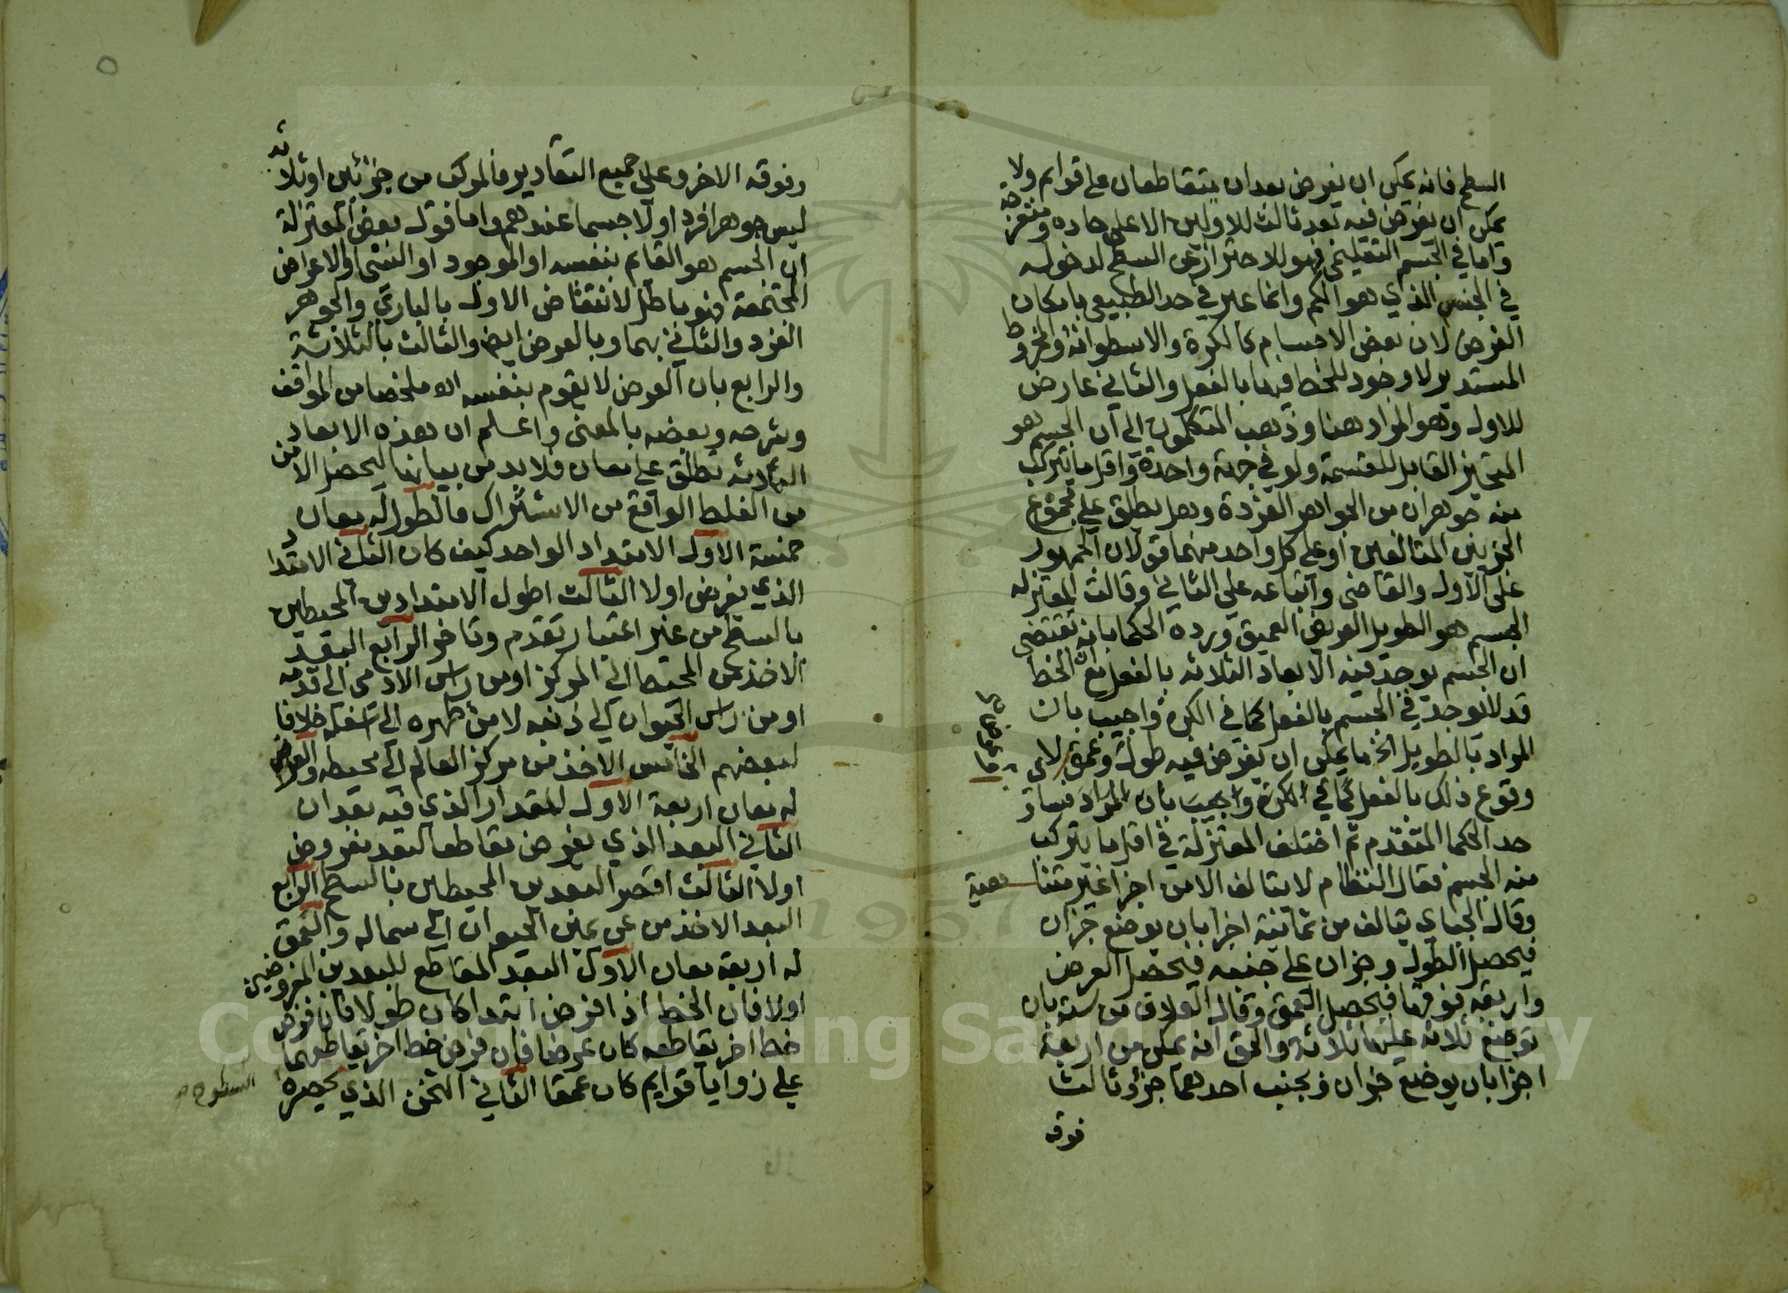 السطح فانه يمكن ان يفرض بعدان يتقاطعان على قوايم ولا
يمكن ان يفرض فيه بعد ثالث للاولين الا على حاده ومنفرجة
واما في الجسم التعليمي فهو للاحتراز عن السطح لدخوله
في الجنس الذي هو الكم وانما عبر في حد الطبيعي بامكان
الفرض لان بعض الاجسام كالكرة والاسطوانة والمخروط
المستدير لا وجود للخط فيها بالفعل والثاني عارض
للاول وهو المراد هنا وذهب المتكلمون الى ان الجسم هو
المتحيز القابل للقسمة ولو في جهة واحدة واقل ما يتركب
منه جوهران من الجواهر الفردة وهل يطلق على مجموع
الجزئين المتالفين او على كل واحد منهما قولان الجمهور
على الاول والقاضي واتباعه على الثاني وقالت المعتزله
الجسم هو الطويل العريض العميق ورده الحكما بانه يقتضي
ان الجسم يوجد فيه الابعاد الثلاثه بالفعل مع ان الخط
قد لا يوجد في الجسم بالفعل كما في الكرة واجيب بان
المراد بالطويل الخ ما يمكن ان يفرض فيه طول وعمق لا
وقوع ذلك بالفعل كما في الكرة واجيب بان المراد
حد الحكما المتقدم ثم اختلف المعتزلة في اقل ما يتركب
منه الجسم فقال النظام لا يتالف الا من اجزا غير متناهية
وقال الجباي يتالف من ثمانية اجزا بان يوضع جزان
فيحصل الطول وجزان على جنبه فيحصل العرض
واربعة فوقها فيحصل العمق وقال العلاف من ستة بان
توضع ثلاثة عليها ثلاثة والحق انه يمكن من اربعة
اجزا بان يوضع جزان وبجنب احدهما جزؤ ثالث
فوقه
وفوقه الاخر وعلى جميع التقادير فالمركب من جزئين او ثلاثه
ليس جوهرا فردا ولا جسما عندهم واما قول بعض المعتزلة
ان الجسم هو القايم بنفسه او الموجود او الشي او الاعراض
المجتمعة فهو باطل لانتقاض الاول بالباري والجوهر
الفرد والثاني بهما وبالعرض ايض والثالث بالثلاثة
والرابع بان العرض لا يقوم بنفسه اه ملخصا من المواقف
وشرحه وبعضه بالمعنى واعلم ان هذه الابعاد
الثلاثه تطلق على معان فلا بد من بيانها ليحصل الامن
من الغلط الواقع من الاشتراك فالطول له معان
خمسة الاول الامتداد الواحد كيف كان الثاني الامتداد
الذي يفرض اولا الثالث اطول الامتدادين المحيطين
بالسطح من غير اعتبار تقدم وتاخر الرابع البعد
الاخذ من المحيط الى المركز او من راس الادمي الى قدمه
او من راس الحيوان الى ذنبه لا من ظهره الى اسفله خلافا
لبعضهم الخامس الاخذ من مركز العالم الى محيطه والعرض
له معان اربعة الاول المقدار الذي فيه بعدان
الثاني البعد الذي يفرض مقاطعا لبعد مفروض
اولا الثالث اقصر البعدين المحيطين بالسطح الرابع
البعد الاخذ من عن يمين الحيوان الى شماله والعمق
له اربعة معان الاول البعد المقاطع للبعدين المفروضين
اولا فان الخط اذا فرض ابتدا كان طولا فان فرض
خط اخر يقاطعه كان عرضا فان فرض خط اخر يقاطعهما
على زوايا قوايم كان عمقا الثاني الثخن الذي يحصره
السطوح